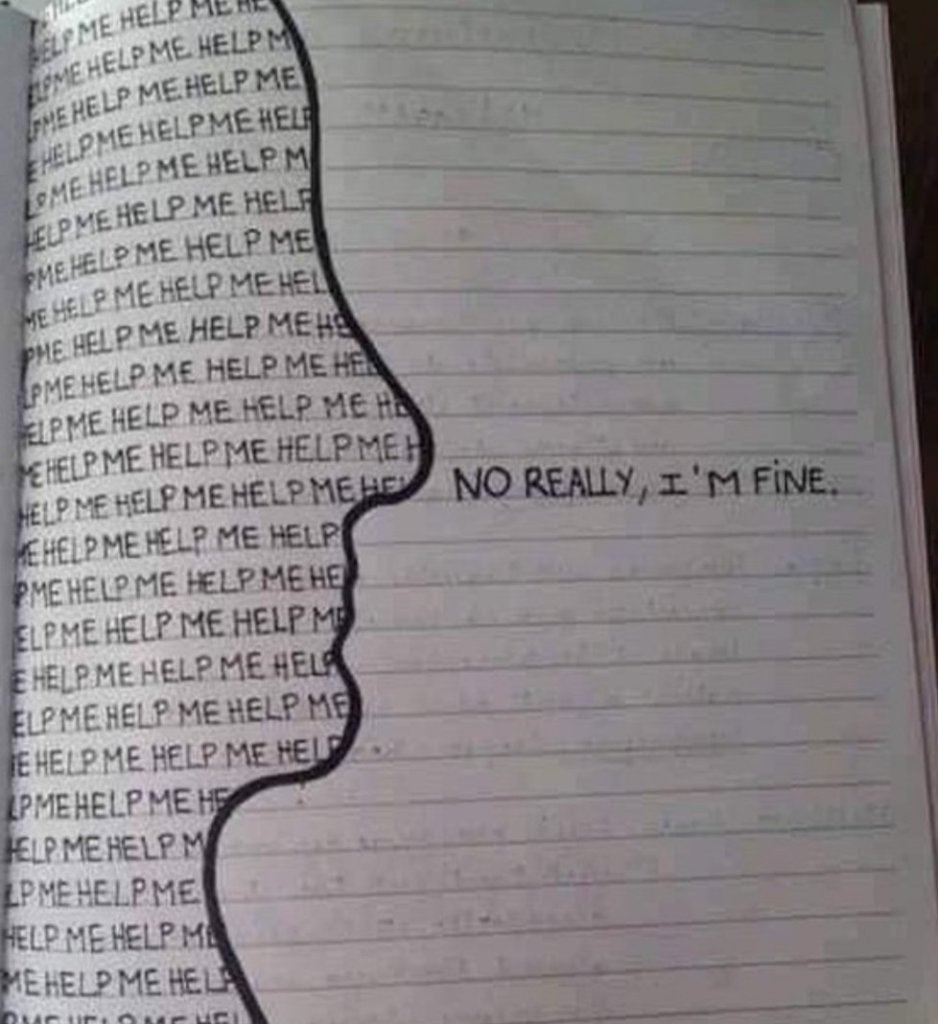 HELP ME HE
ELP ME HELP ME HELP M
LPME HELP ME HELP ME
PME HELP ME HELP ME HELP
E HELP ME HELP ME HELP M
LP ME HELP ME HELP M
HELP ME HELP ME HELP
PME HELP ME HELP ME
ME HELP ME HELP ME HEL
PME HELP ME HELP ME HE
LPME HELP ME HELP ME HEL
ELP ME HELP ME HELP ME HE
ME HELP ME HELP ME HELP ME H
HELP ME HELP ME HELP ME HEL
NO REALLY, I'M FiNE.
ME HELP ME HELP ME HELP
PME HELP ME HELP ME HE
ELP ME HELP ME HELP ME
E HELP ME HELP ME HELP
ELP ME HELP ME HELP ME
E HELP ME HELP ME HELP
LPME HELP ME HE
HELP ME HELP M
LPME HELP ME
HELP ME HELP ME
ME HELP ME HELP